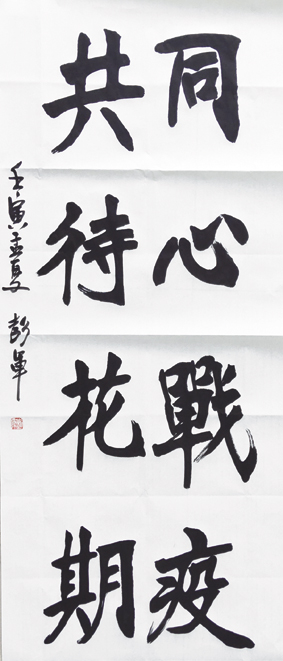 同心戰疫
共待花期
壬寅孟夏 彭軍